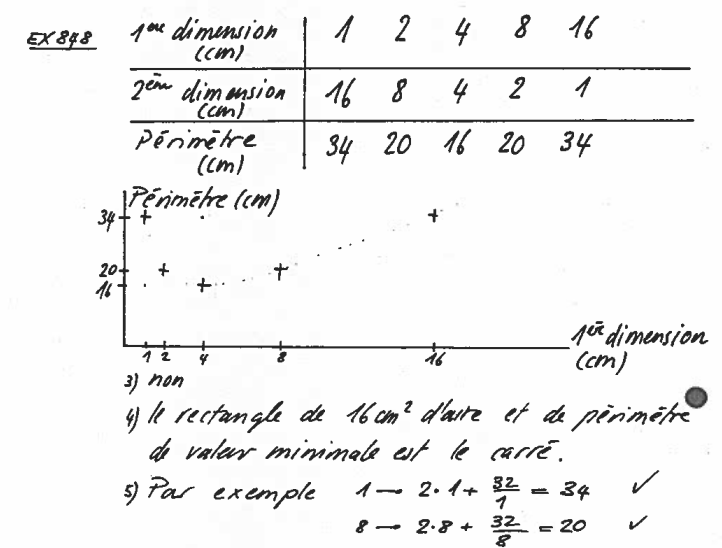 EX 848
1ère dimension (cm) 1 2 4 8 16
2ème dimension (cm) 16 8 4 2 1
Périmètre (cm) 34 20 16 20 34
Périmètre (cm)
34
20
16
1 2 4 8 16
1ère dimension (cm)
3) non
4) le rectangle de 16 cm² d'aire et de périmètre
de valeur minimale est le carré.
5) Par exemple 1 → 2·1 + 32/1 = 34 ✓
8 → 2·8 + 32/8 = 20 ✓